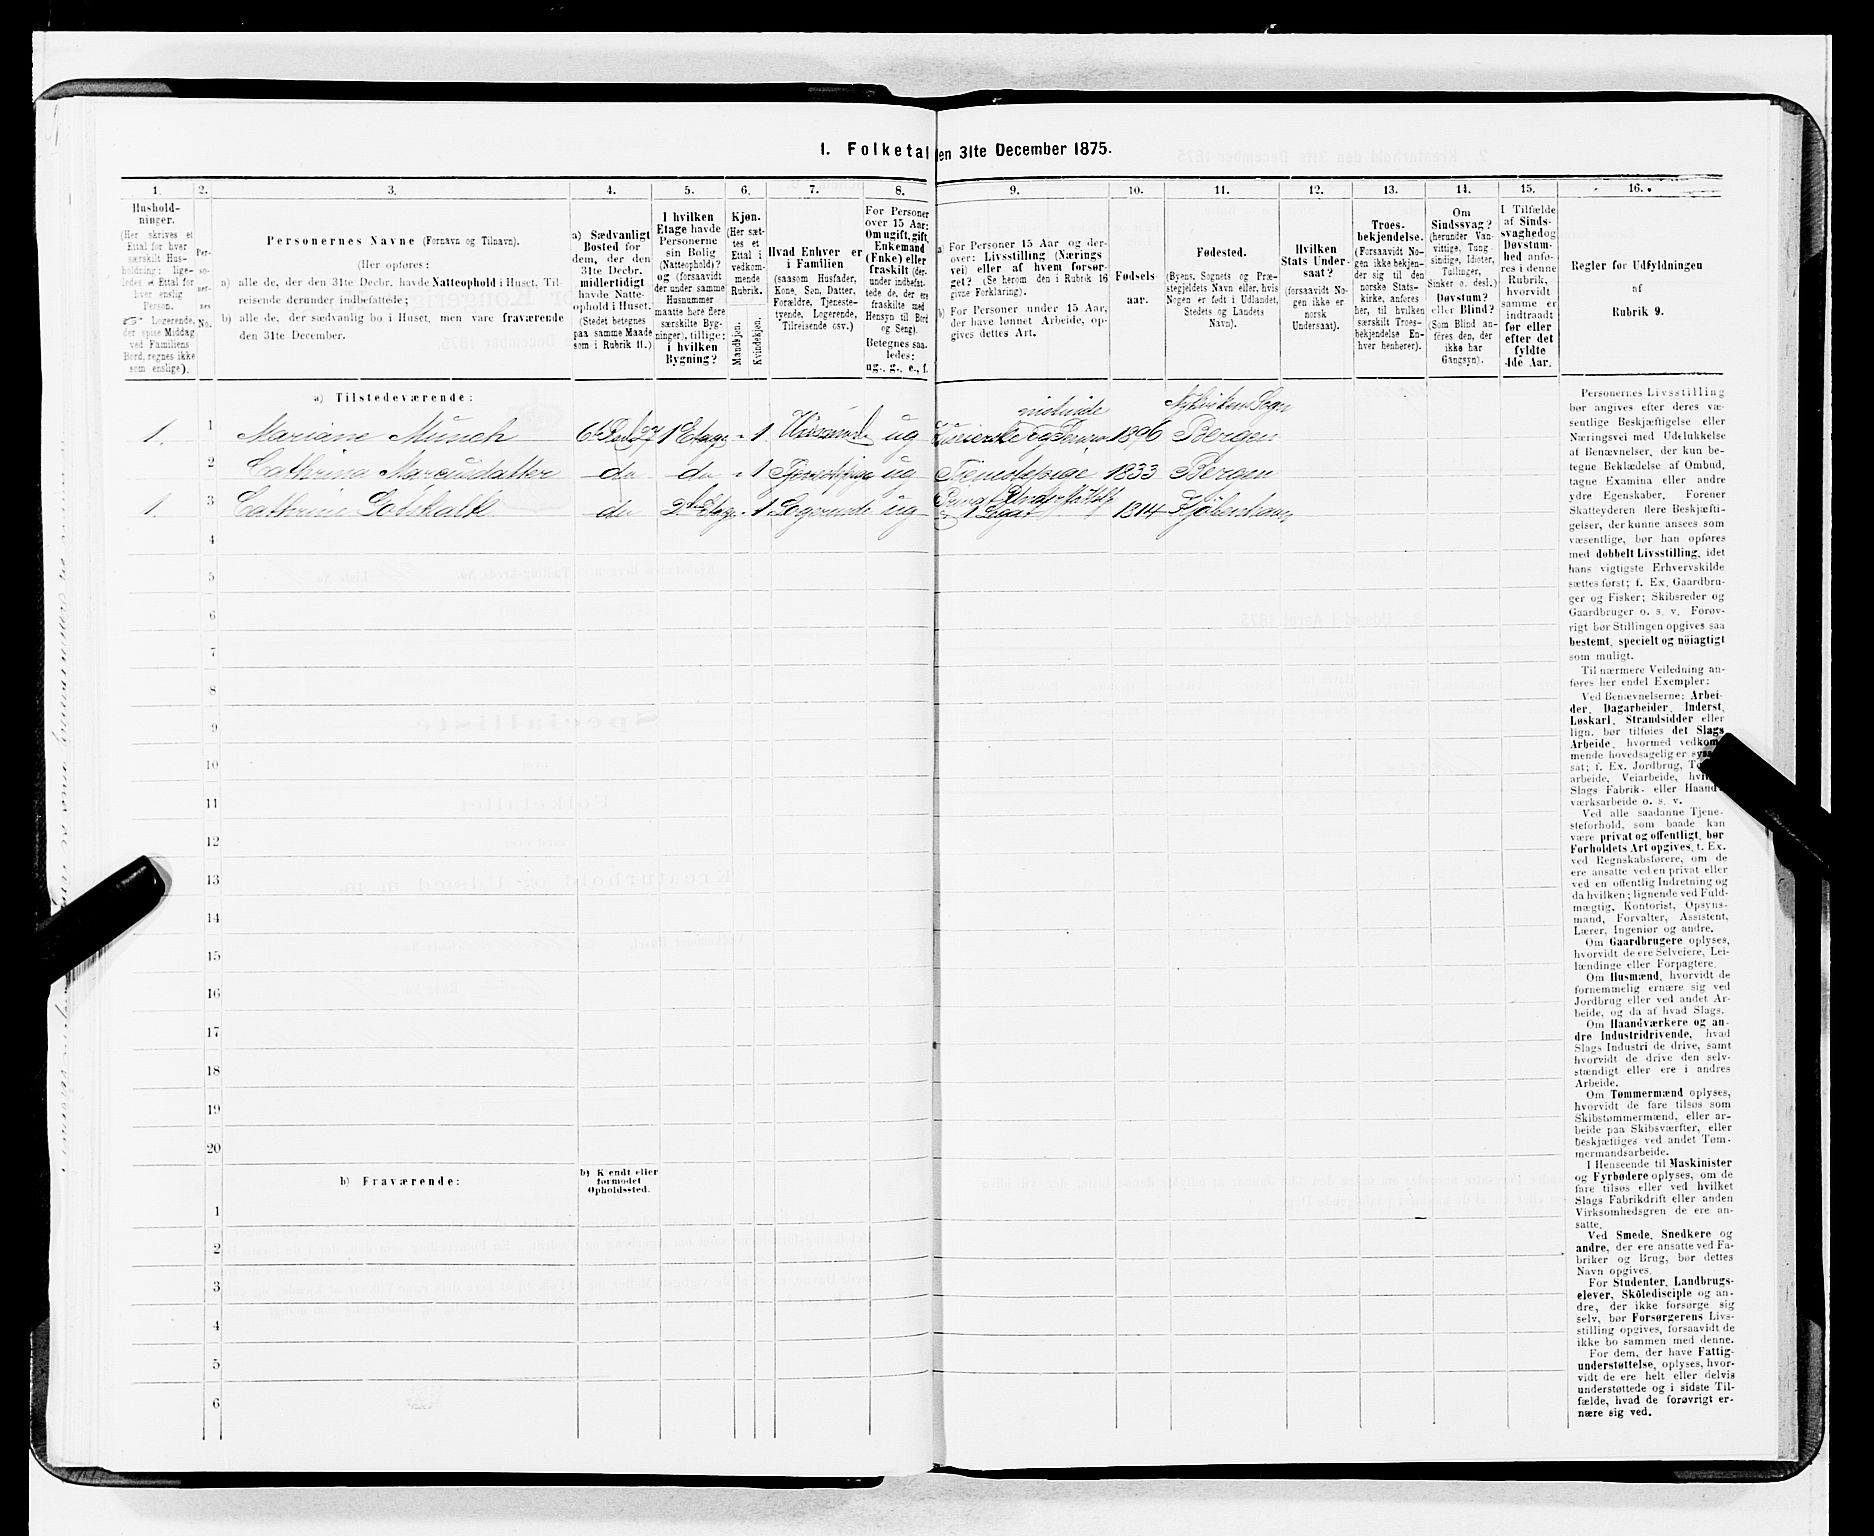 I. Folketal den 31te December 1875.
1. 2. 3. 4. 5. 6. 7. 8. 9. 10. 11. 12. 13. 14. 15. 16.
Hushold-
ninger.
(Her skrives et
Ettal for hver
særskilt Hus-
holdning; lige-
ledes et Ettal for
hver enslig
Person.
Logerende,
der spise Middag
ved Familiens
Bord, regnes ikke
som enslige).
Per-
so-
ner-
nes
No.
Personernes Navne (Fornavn og Tilnavn).
(Her opføres:
a) alle de, der den 31te Decbr. havde Natteophold i Huset, Til-
reisende derunder indbefattede;
b) alle de, der sædvanlig bo i Huset, men vare fraværende
den 31te December.
a) Sædvanligt
Bosted for
dem, der den
31te Decbr.
midlertidigt
havde Natte-
ophold i Huset.
(Stedet betegnes
paa samme Maade
som i Rubrik 11.)
I hvilken
Etage havde
Personerne
sin Bolig
(Natteophold)?
og (forsaavidt
der under samme
Husnummer
maatte høre flere
særskilte Byg-
ninger), tillige:
i hvilken
Bygning?
Kjøn.
(Her sæt-
tes et
Ettal i
vedkom-
mende
Rubrik.
Mandkjøn.
Kvindekjøn.
Hvad Enhver er
i Familien
(saasom Husfader,
Kone, Søn, Datter,
Forældre, Tjeneste-
tyende, Logerende,
Tilreisende osv.)
For Personer
over 15 Aar:
Om ugift, gift,
Enkemand
(Enke) eller
fraskilt (der-
under indbefat-
tede de, der ere
fraskilte med
Hensyn til Bord
og Seng).
Betegnes saa-
ledes:
ug., g., e., f.
a) For Personer 15 Aar og der-
over: Livsstilling (Nærings
vei) eller af hvem forsør-
get? (Se herom den i Rubrik 16
givne Forklaring).
b) For Personer under 15 Aar,
der have lønnet Arbeide, op-
gives dettes Art.
Fødsels-
aar.
Fødested.
(Byens, Sognets og Præ-
stegjeldets Navn eller, hvis
Nogen er født i Udlandet,
Stedets og Landets
Navn).
Hvilken
Stats Under-
saat?
(forsaavidt No-
gen ikke er
norsk
Undersaat).
Troes-
bekjendelse.
(Forsaavidt No-
gen ikke bekjen-
der sig til den
norske Stats-
kirke, anføres
her, til hvilken
særskilt Troes-
bekjendelse En-
hver henhører).
Om
Sindssvag?
(herunder Van-
vittige, Tung-
sindige, Idioter,
Tullinger,
Sinker o. desl.)
Døvstum?
eller Blind?
(Som Blind an-
føres den, der
ikke har
Gangsyn).
I Tilfælde
af Sinds-
svaghed og
Døvstum-
hed anfø-
res i denne
Rubrik,
hvorvidt
samme er
indtraadt
før eller
efter det
fyldte
4de Aar.
Regler for Udfyldningen
af
Rubrik 9.
a) Tilstedeværende:
1. 1 Mariane Münch 1 ug 1896 Bergen
2 Cathrina Marcusdatter do do 1 ug Tjenestepige 1833 Bergen
1. 3 Cathrine do 1 Logerende ug 1814 Kjøbenhavn
4
5
6
7
8
9
10
11
12
13
14
15
16
17
18
19
20
b) Fraværende:
b) Kjendt eller
formodet
Opholdssted.
1
2
3
4
5
6
Personernes Livsstilling
bør angives efter deres væ-
sentlige Beskjæftigelse eller
Næringsvei med Udelukkelse
af Benævnelser, der kun be-
tegne Beklædelse af Ombud,
tagne Examina eller andre
ydre Egenskaber. Forener
Skatteyderen flere Beskjæfti-
gelser, der kunne ansees som
væsentlige, bør han opføres
med dobbelt Livsstilling, idet
hans vigtigste Erhvervskilde
sættes først; f. Ex. Gaardbru-
ger og Fisker; Skibsreder og
Gaardbruger o. s. v. Forøv-
rigt bør Stillingen opgives saa
bestemt, specielt og nöiagtigt
som muligt.
Til nærmere Veiledning an-
føres her endel Exempler:
Ved Benævnelserne: Arbei-
der, Dagarbeider, Inderst,
Løskarl, Strandsidder eller
lign. bør tilføies det Slags
Arbeide, hvormed vedkom-
mende hovedsagelig er
sat; f. Ex. Jordbrug,
arbeide, Veiarbeide,
Slags Fabrik- eller
værksarbeide o. s. v.
Ved alle saadanne Tjene-
steforhold, som baade kan
være privat og offentligt, bør
Forholdets Art opgives, t. Ex.
ved Regnskabsførere, om de
ere ansatte ved en privat eller
ved en offentlig Indretning og
da hvilken; lignende ved Fuld-
mægtig, Kontorist, Opsyns-
mand, Forvalter, Assistent,
Lærer, Ingeniør og andre.
Om Gaardbrugere oplyses,
hvorvidt de ere Selveiere, Lei-
lændinge eller Forpagtere.
Om Husmænd, hvorvidt de
fornemmelig ernære sig ved
Jordbrug eller ved andet Ar-
beide, og da af hvad Slags.
Om Haandværkere og an-
dre Industridrivende, hvad
Slags Industri de drive, samt
hvorvidt de drive den selv-
stændigt eller ere i andres
Arbeide.
Om Tømmermænd oplyses,
hvorvidt de fare tilsøs som
Skibstømmermænd, eller ar-
beide paa Skibsværfter, eller
beskjæftiges ved andet Tøm-
mermandsarbeide.
I Henseende til Maskinister
og Fyrbødere oplyses, om de
fare tilsøs eller ved hvilket
Slags Fabrikdrift eller anden
Virksomhedsgren de ere an-
satte.
Ved Smede, Snedkere og
andre, der ere ansatte ved Fa-
briker og Brug, bør dettes
Navn opgives.
For Studenter, Landbrugs-
elever, Skôledisciple og an-
dre, der ikke forsørge sig
selv, bør Forsørgerens Livs-
stilling opgives, forsaavidt de
ikke bo sammen med denne.
For dem, der have Fattig-
understøttelse, oplyses, hvor-
vidt de ere helt eller delvis
understøttede og i sidste Til-
fælde, hvad de forøvrigt er-
nære sig ved.